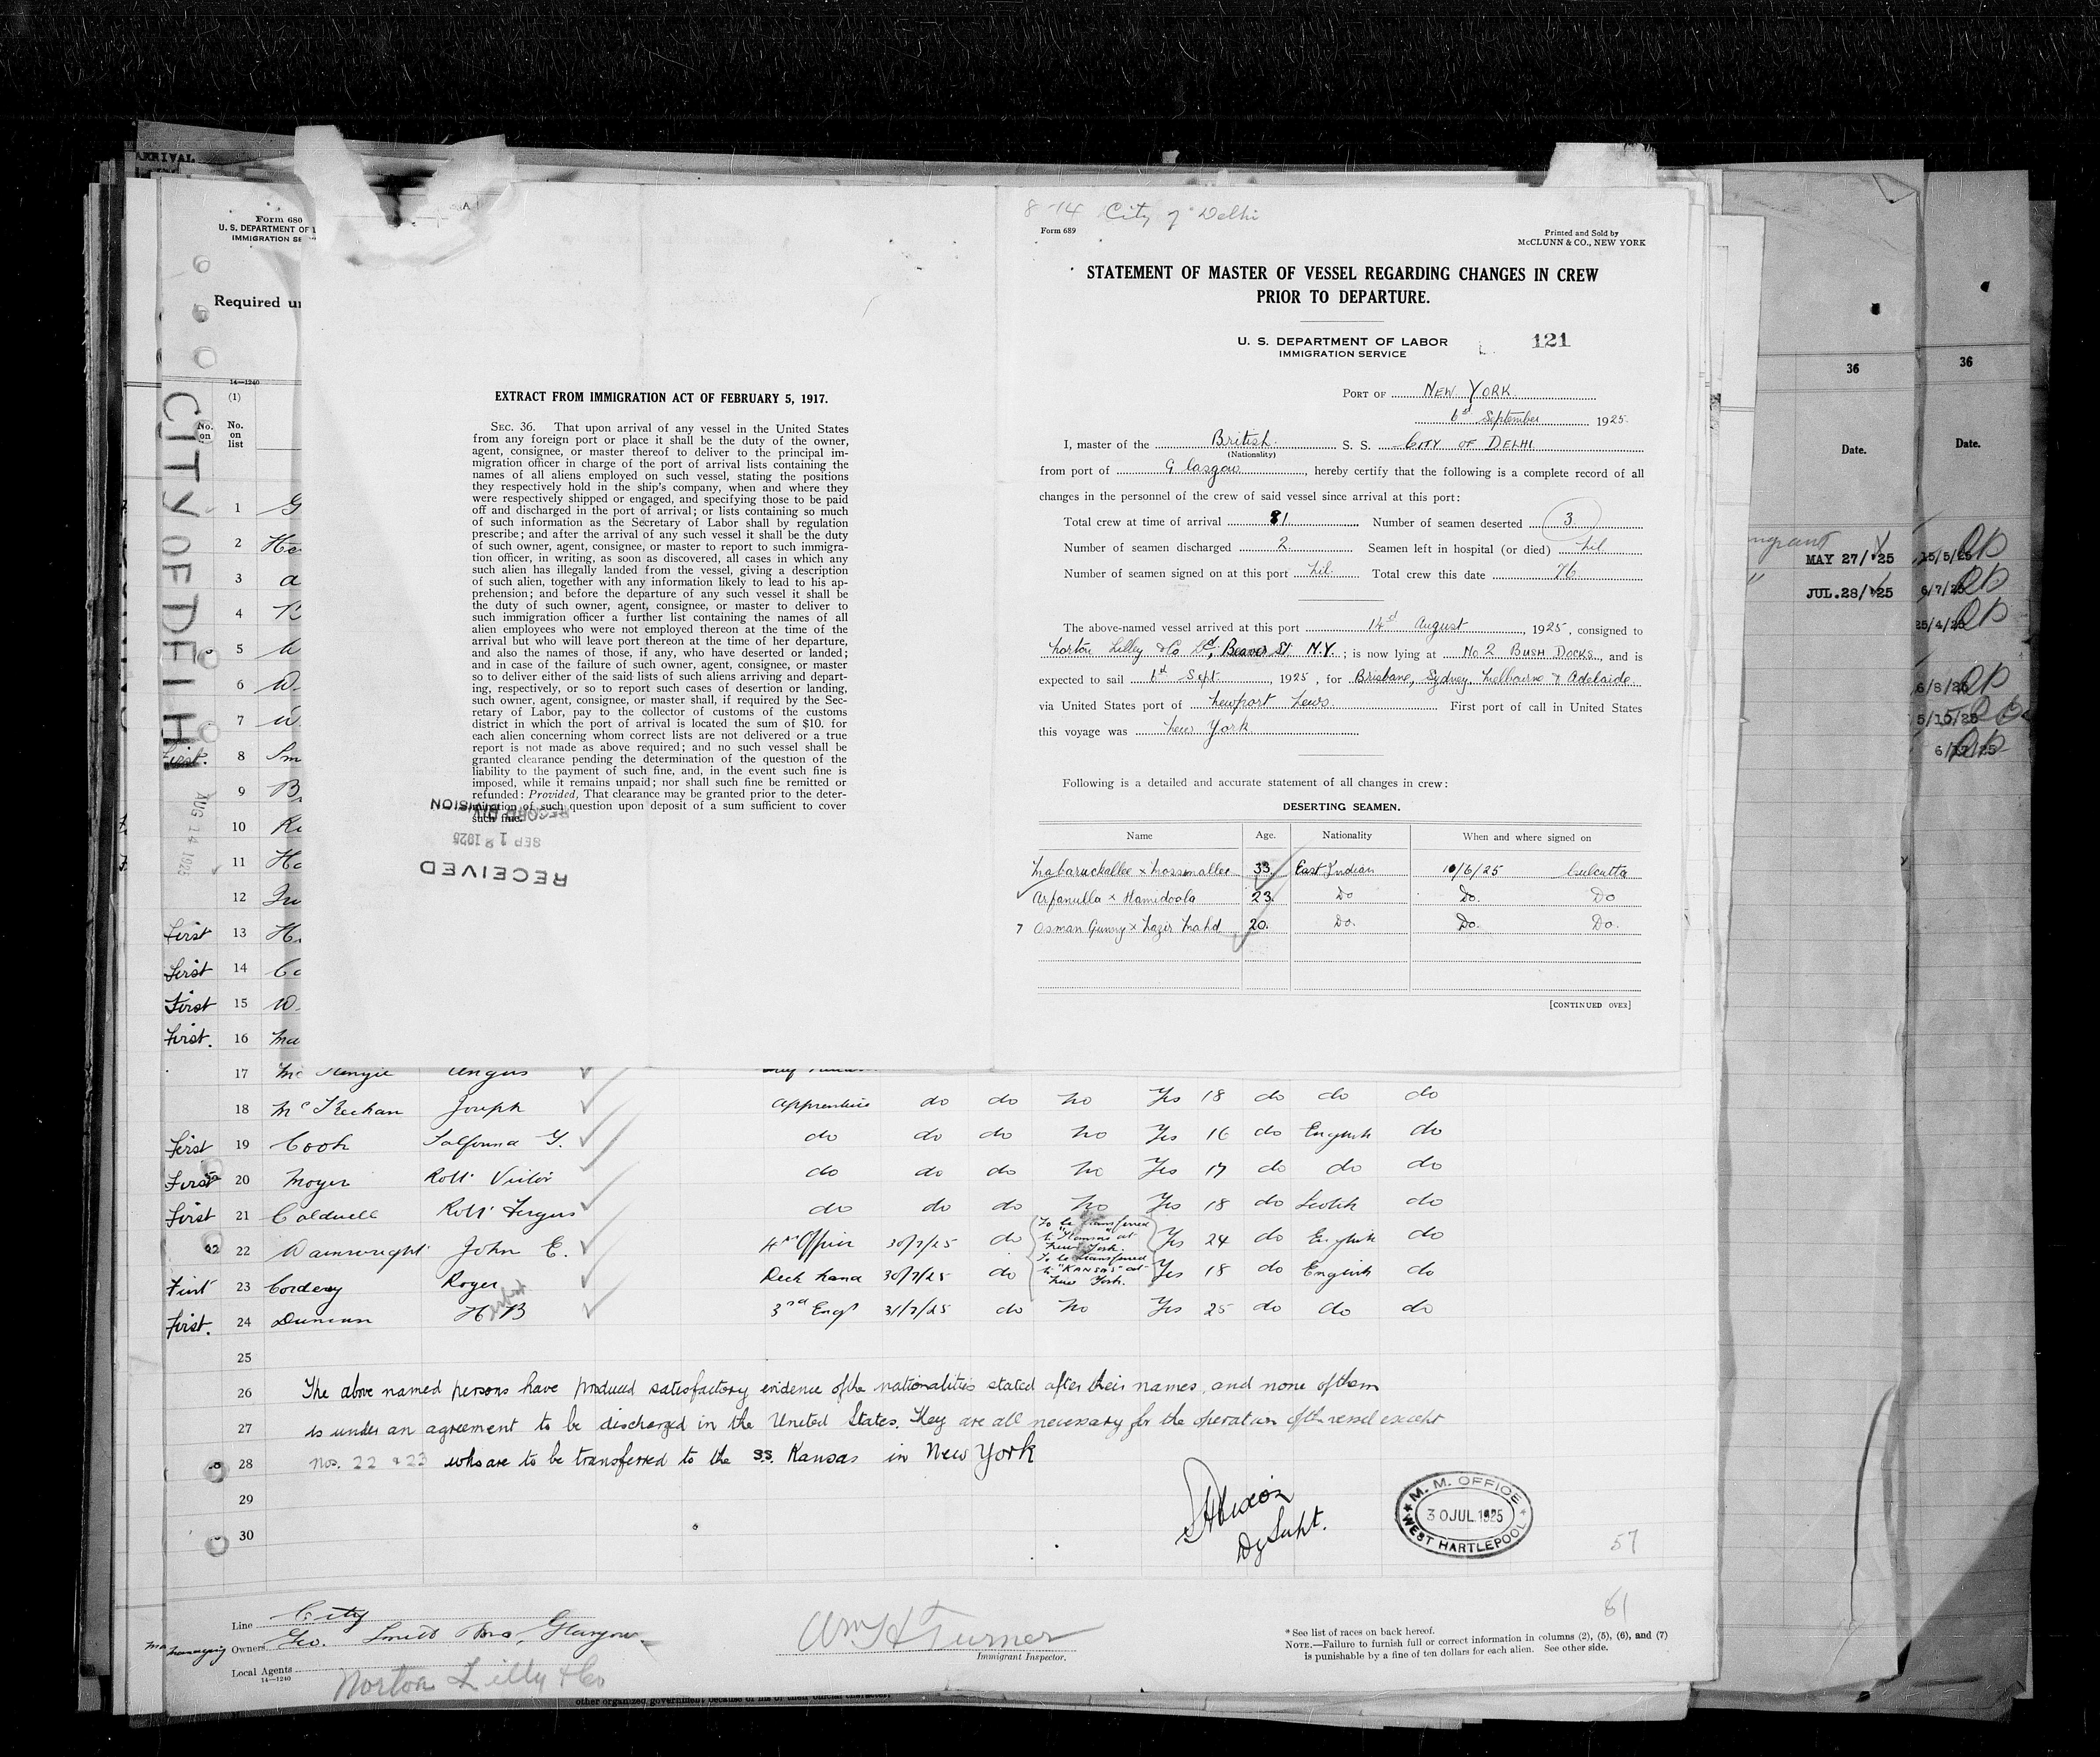 ARRIVAL
Form 680
U. S. DEPARTMENT OF
IMMIGRATION SE
Required un
14—1240
(1)
No. on
No. on list
CITY OF DELHI
AUG 14 1925
1 G
2 He
3 a
4
5
6 W.
7
First. 8 Sm
9 B
10
11 Ho
12
First 13 H.
First 14 Co
First 15 W.
First. 16 Ma
EXTRACT FROM IMMIGRATION ACT OF FEBRUARY 5, 1917.
SEC. 36. That upon arrival of any vessel in the United States
from any foreign port or place it shall be the duty of the owner,
agent, consignee, or master thereof to deliver to the principal im-
migration officer in charge of the port of arrival lists containing the
names of all aliens employed on such vessel, stating the positions
they respectively hold in the ship's company, when and where they
were respectively shipped or engaged, and specifying those to be paid
off and discharged in the port of arrival; or lists containing so much
of such information as the Secretary of Labor shall by regulation
prescribe; and after the arrival of any such vessel it shall be the duty
of such owner, agent, consignee, or master to report to such immigra-
tion officer, in writing, as soon as discovered, all cases in which any
such alien has illegally landed from the vessel, giving a description
of such alien, together with any information likely to lead to his ap-
prehension; and before the departure of any such vessel it shall be
the duty of such owner, agent, consignee, or master to deliver to
such immigration officer a further list containing the names of all
alien employees who were not employed thereon at the time of the
arrival but who will leave port thereon at the time of her departure,
and also the names of those, if any, who have deserted or landed;
and in case of the failure of such owner, agent, consignee, or master
so to deliver either of the said lists of such aliens arriving and depart-
ing, respectively, or so to report such cases of desertion or landing,
such owner, agent, consignee, or master shall, if required by the Sec-
retary of Labor, pay to the collector of customs of the customs
district in which the port of arrival is located the sum of $10. for
each alien concerning whom correct lists are not delivered or a true
report is not made as above required; and no such vessel shall be
granted clearance pending the determination of the question of the
liability to the payment of such fine, and, in the event such fine is
imposed, while it remains unpaid; nor shall such fine be remitted or
refunded: Provided, That clearance may be granted prior to the deter-
mination of such question upon deposit of a sum sufficient to cover
such fine.
RECEIVED
SEP 1 8 1925
RECORD DIVISION
8-14 City of Delhi
Form 689
Printed and Sold by
McCLUNN & CO., NEW YORK
STATEMENT OF MASTER OF VESSEL REGARDING CHANGES IN CREW
PRIOR TO DEPARTURE.
U. S. DEPARTMENT OF LABOR
IMMIGRATION SERVICE
121
PORT OF NEW YORK
September 1925
I, master of the British S. S. CITY OF DELHI
(Nationality)
from port of Glasgow, hereby certify that the following is a complete record of all
changes in the personnel of the crew of said vessel since arrival at this port:
Total crew at time of arrival 81 Number of seamen deserted 3
Number of seamen discharged 2 Seamen left in hospital (or died) Nil
Number of seamen signed on at this port Nil Total crew this date 76
The above-named vessel arrived at this port 14th August, 1925, consigned to
Norton Lilley & Co Ld, Beaver St N.Y.; is now lying at No 2 BUSH DOCKS, and is
expected to sail Sept, 1925, for Brisbane, Sydney, Melbourne & Adelaide
via United States port of Newport News. First port of call in United States
this voyage was New York
Following is a detailed and accurate statement of all changes in crew:
DESERTING SEAMEN.
Name Age. Nationality When and where signed on
Mabaruckallee x Mossimallee 33. East Indian 10/6/25 Calcutta
Arfanulla x Hamidoola 23. Do Do. Do
7 Osman Gunny x Nazir Mahd 20. Do. Do. Do.
[CONTINUED OVER]
36 36
Date. Date.
MAY 27/25 15/5/25
JUL. 28/25 6/7/25
25/4/25
6/8/25
5/10/25
17 Mc Kenzie Angus
18 McKechan Joseph Apprentice do do No Yes 18 do do do
First 19 Cook do do do No Yes 16 do English do
First 20 Moyer Robt Victor do do do No Yes 17 do do do
First 21 Caldwell Robt Fergus do do do No Yes 18 do Scotch do
22 Wainwright John E. 4th Officer 30/7/25 do To be transferred to "Kansas" at New York. Yes 24 do English do
First 23 Cordery Roger Deck hand 30/7/25 do To be transferred to "KANSAS" at New York. Yes 18 do English do
First. 24 Duncan H B 3rd Engr 31/7/25 do No Yes 25 do do do
25
26 The above named persons have produced satisfactory evidence of the nationalities stated after their names, and none of them
27 is under an agreement to be discharged in the United States. They are all necessary for the operation of the vessel except
28 Nos. 22 & 23 who are to be transferred to the SS. Kansas in New York
29
30
Dy Supt.
M. M. OFFICE
30 JUL 1925
WEST HARTLEPOOL
57
61
Line City
Managing Owners Geo. Smith & Sons, Glasgow
Local Agents Norton Lilly & Co
14—1240
Wm H Turner
Immigrant Inspector.
* See list of races on back hereof.
NOTE.—Failure to furnish full or correct information in columns (2), (5), (6), and (7)
is punishable by a fine of ten dollars for each alien. See other side.
other organized government, because of his or their official character,